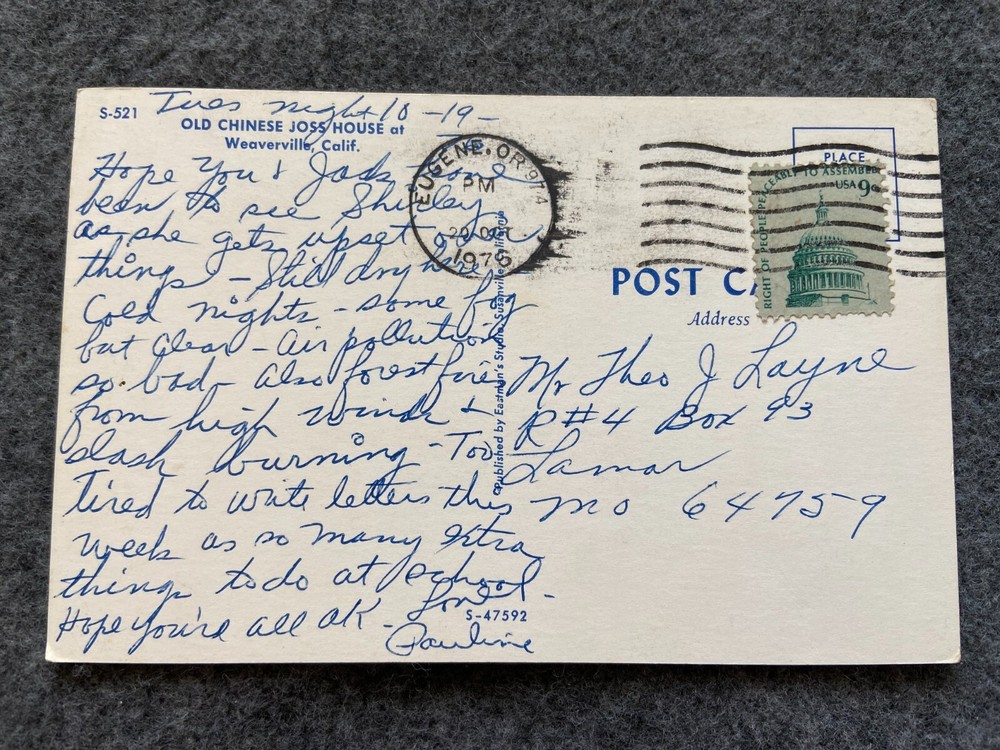 S-521
Tues night 10-19-
OLD CHINESE JOSS HOUSE at
Weaverville, Calif.
Hope you & Jack
been to see Shirley
as she gets upset over
things - Still dry here
Cold nights - some fog
but clear - air pollution
so bad - also forest fire
from high winds &
slash burning - Too
tired to write letters this
week as so many extra
things to do at school -
Hope you're all OK - Love
Pauline
S-47592
Published by Eastman's Studio, Susanville, California
EUGENE, OR 974
PM
20 OCT
1976
PLACE
RIGHT OF PEOPLE PEACEABLY TO ASSEMBLE
USA 9c
POST CA
Address
Mr Theo J Layne
R#4 Box 93
Lamar
Mo 64759